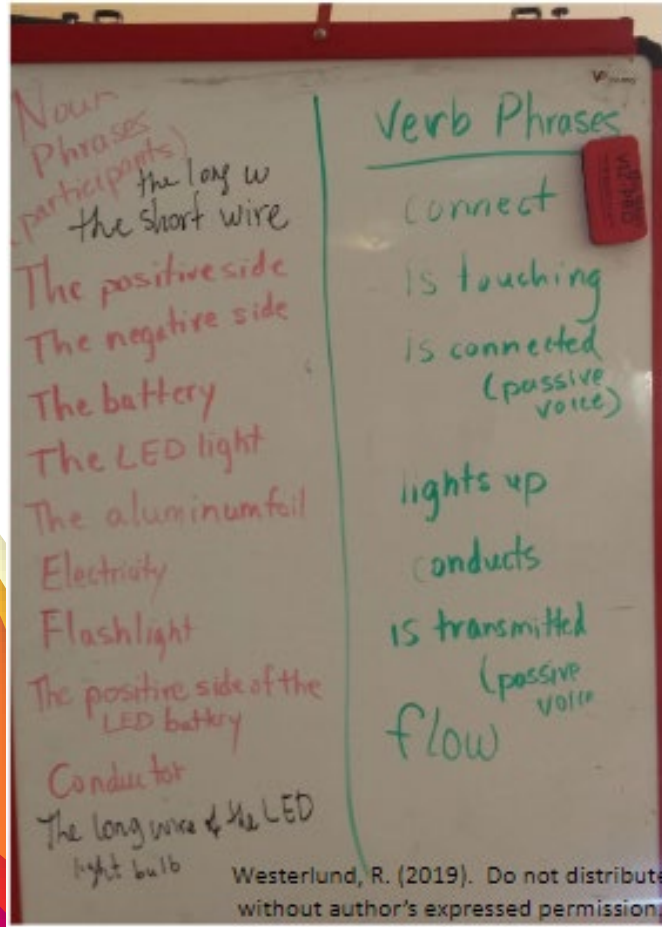 Noun
Phrases
(participants)
the long w
the short wire
The positive side
The negative side
The battery
The LED light
The aluminum foil
Electricity
Flashlight
The positive side of the
LED battery
Conductor
The long wire of the LED
light bulb
Verb Phrases
connect
is touching
is connected
(passive
voice)
lights up
conducts
is transmitted
(passive
voice
flow
Westerlund, R. (2019). Do not distribute
without author's expressed permission.